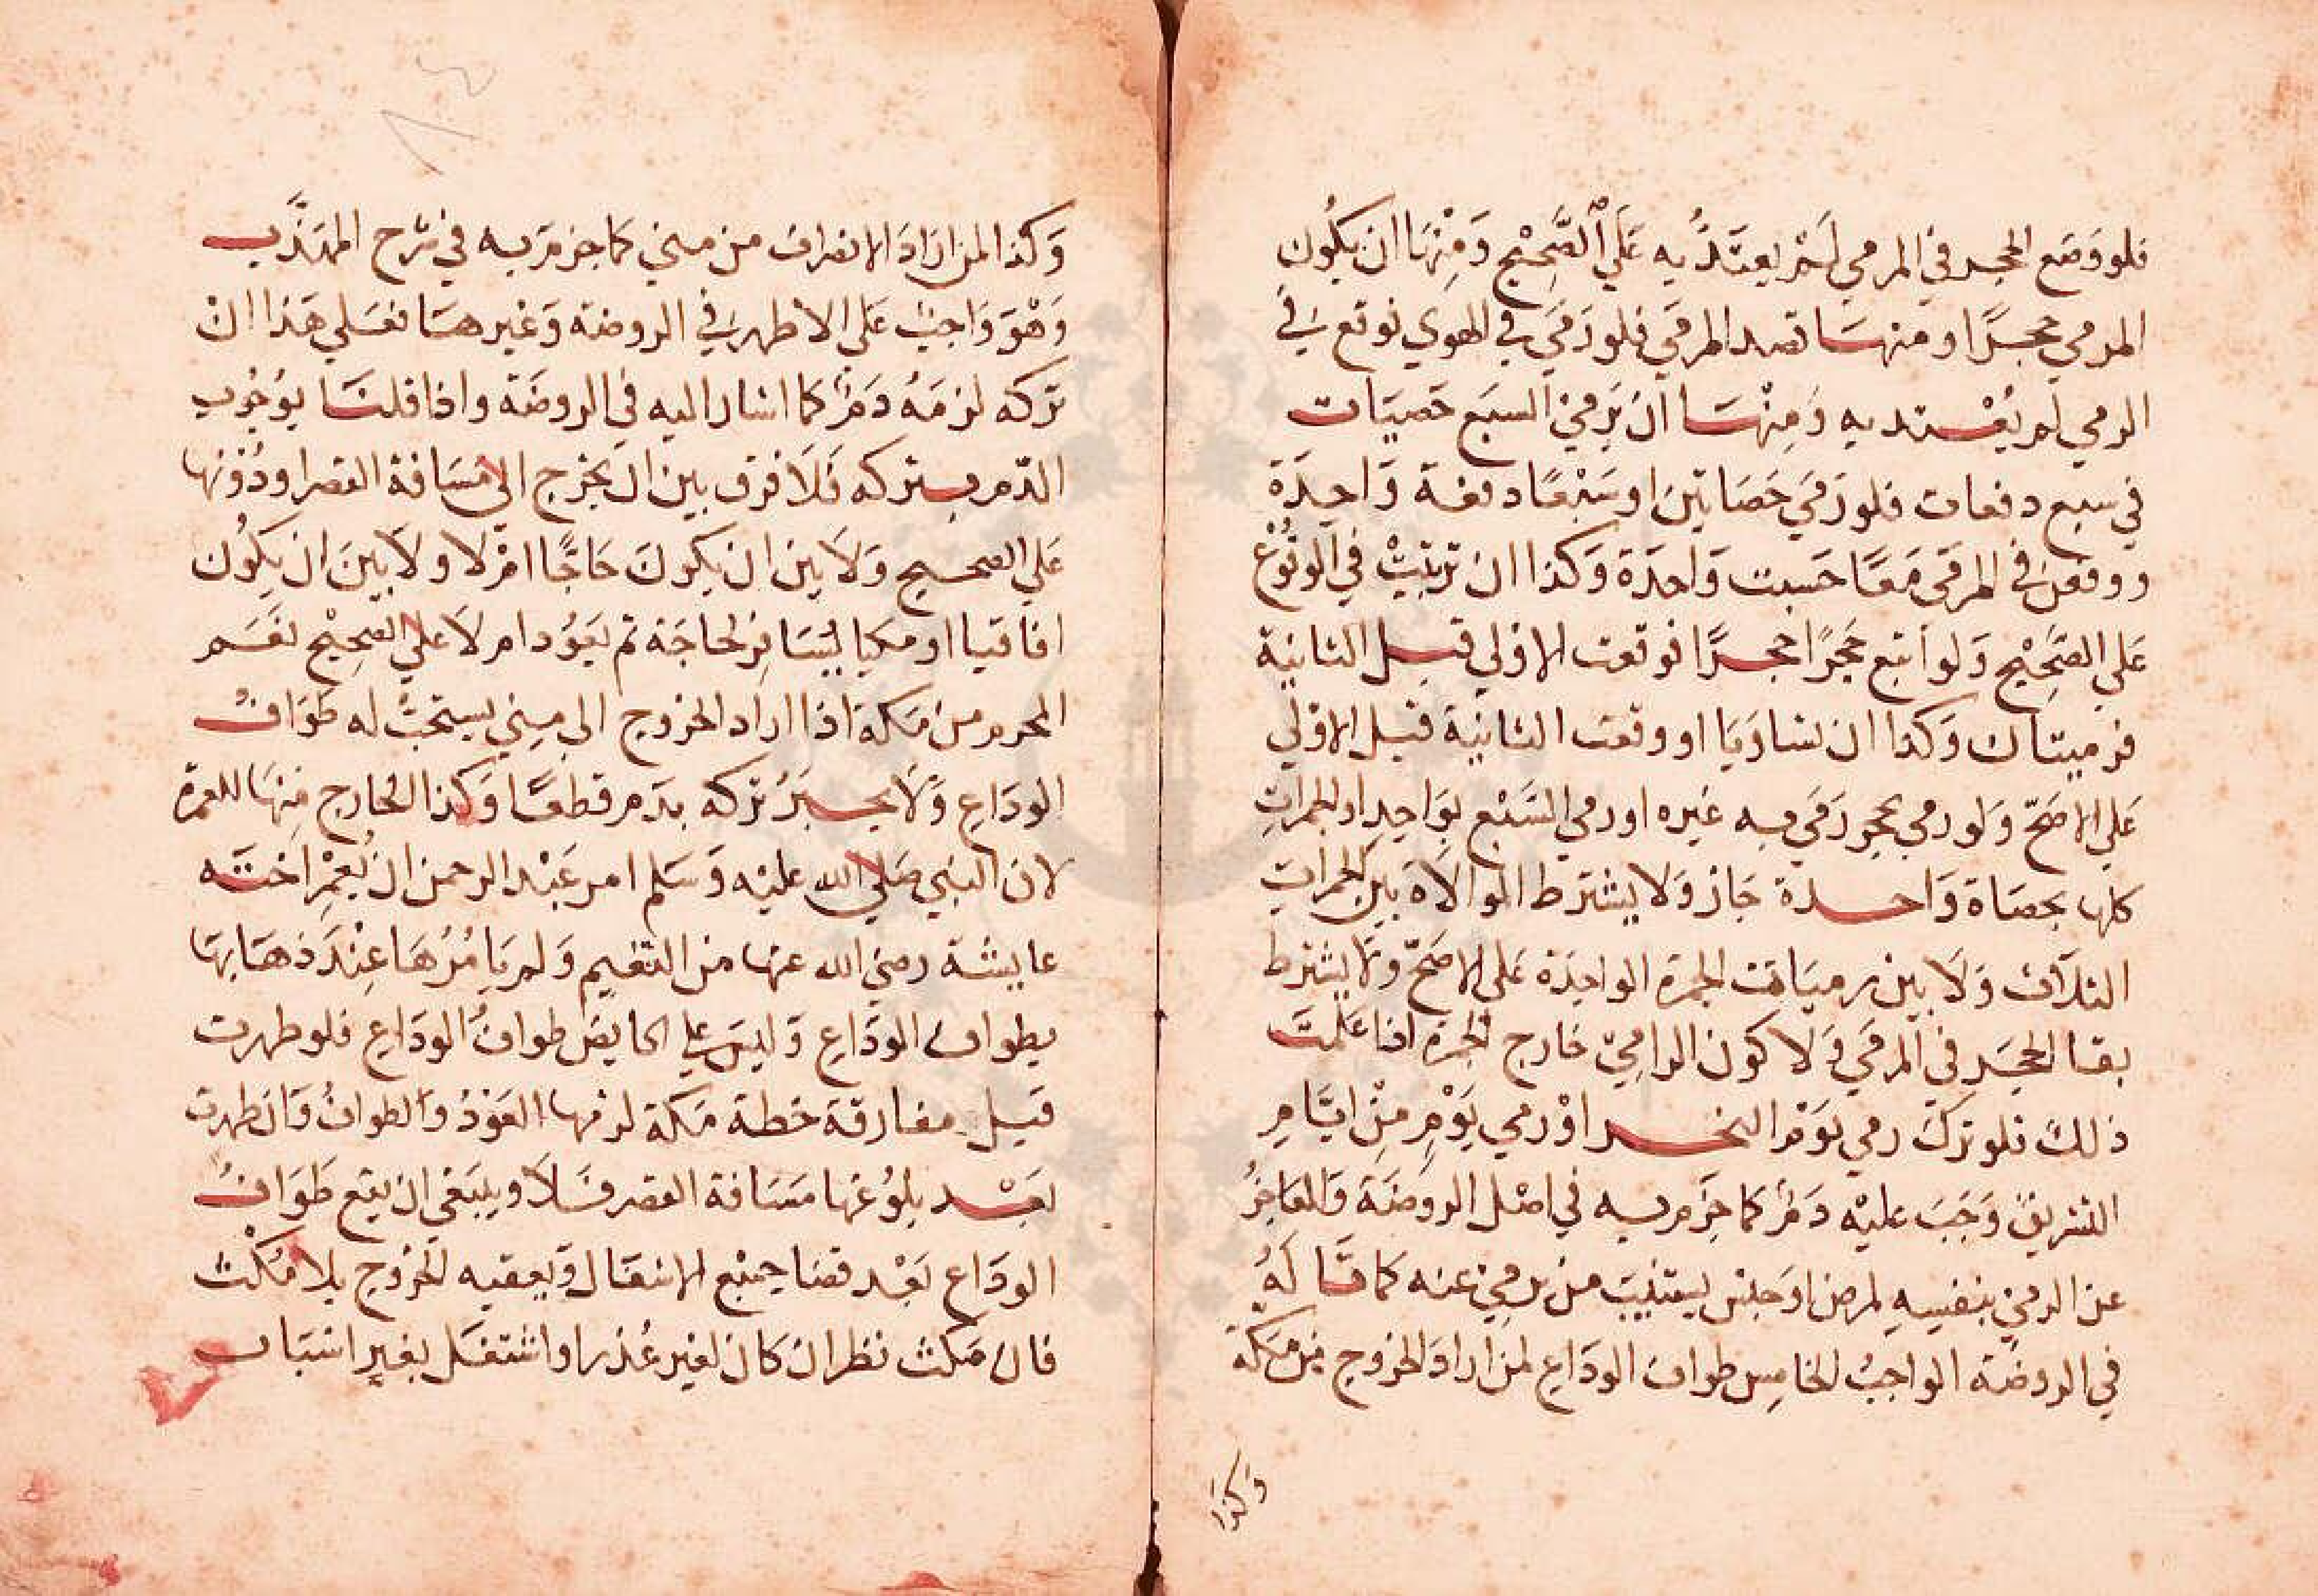 فلو وضع الحجر في المرمي لَمْ يعتَدُّ به عَلَي الصَّحِيْحِ وَمِنْهَا ان يكُون
المرمي حجرًا ومنهَا قصد المرمَي فلو رَمَي في الهوي فوقع في
الرمي لم يُعْتد به وَمِنْهَا ان يَرمي السبع حَصيَات
في سبع دفعات فلو رَمَي حَصَاتين او سَبْعًا دفعة وَاحِدَة
ووقعن في المرمَي مَعًا حَسبت وَاحدَة وَكذا ان ترتبتْ في الوقُوْعْ
عَلي الصَّحِيْحِ وَلو اتبع حَجَرًا حجرًا فوقعت الاوْلي قبل الثانيَة
فرميتان وَكذا ان تسَاويَا او وقعت الثانيَة قبل الاوْلي
عَلي الاصَحّ وَلو رمي بحجر رَمَي به غيره او رمي السَبْع بوَاحِد او الجمراتِ
كلها بحصَاة وَاحدة جَاز وَلا يشترط الموالَاة بين الجمرَات
الثلَاث وَلَا بين رميَات الجمرَة الواحِدَة عَلي الاصَحّ وَلَا يشترط
بقا الحجَرِ في المرمَي وَلَا كون الرامِي خَارج الجمرَة اذا عَلمتَ
ذلكَ فلو تركَ رمي يَوْم النحر اوْ رمي يَوْمٍ مِنْ ايَّام
التشريق وَجَبَ عليْه دَمٌ كما جَزَم به في اصْل الروضَة وَالعَاجزُ
عن الرمي بنفسِهِ لمرض اوَ حبْس يستنيبَ من يرمي عنه كما قَالَهُ
في الروضَة الواجبُ الخامِس طواف الودَاعِ لمن ارادَ الخروج من مَكة
وَكذا
وَكذا لمن ارَادَ الانصراف من مني كما جزمَ به في شرح المهَذَّب
وَهْوَ وَاجبٌ عَلي الاظهر في الروضة وَغيرهَا فعَلي هَذا انْ
تركه لزمَهُ دَمٌ كما اشار اليه في الروضَة واذا قلنَا بوُجُوب
الدّم بتركه فَلَا فرق بين ان يَخرج الي مسَافة القصر او دُوْنها
عَلي الصحيح وَلَا بين ان يكونَ حَاجًّا امْ لا ولَا بيَن ان يكوُن
افاقيا او مكيا يُسَافِر لحاجَة ثم يَعوُد ام لَا علي الصَّحِيْح نعَم
المحرم من مَكة اذا اراد الخروج الي مِني يستحَبّ له طوَافُ
الودَاعِ وَلَا يجبَرُ تركه بدَم قطعًا وَكذا الخارج مِنهَا للعمرَة
لان النبي صَلي الله عليْه وَسَلم امر عَبْد الرحمن ان يُعْمِرَ اختَه
عايشَة رضي الله عنها من التنعِيم وَلم يَامُرُهَا عِنْدَ ذهَابهَا
بطواف الودَاعِ وَليسَ علي الحايض طوافُ الودَاعِ فلو طهرت
قبل مفارقة خطة مَكة لزمها العَوْدُ وَالطوافُ وَان طهرت
بَعْد بلوُغها مسَافة القصر فَلَا وينبَغي ان يقع طَوَافُ
الودَاع بَعْد قضا جميْع الاشغَال وَيعقبه الخروج بلا مُكْث
فان مَكث نظر ان كان لغير عُذر او اشتغَل بغير اسبَاب